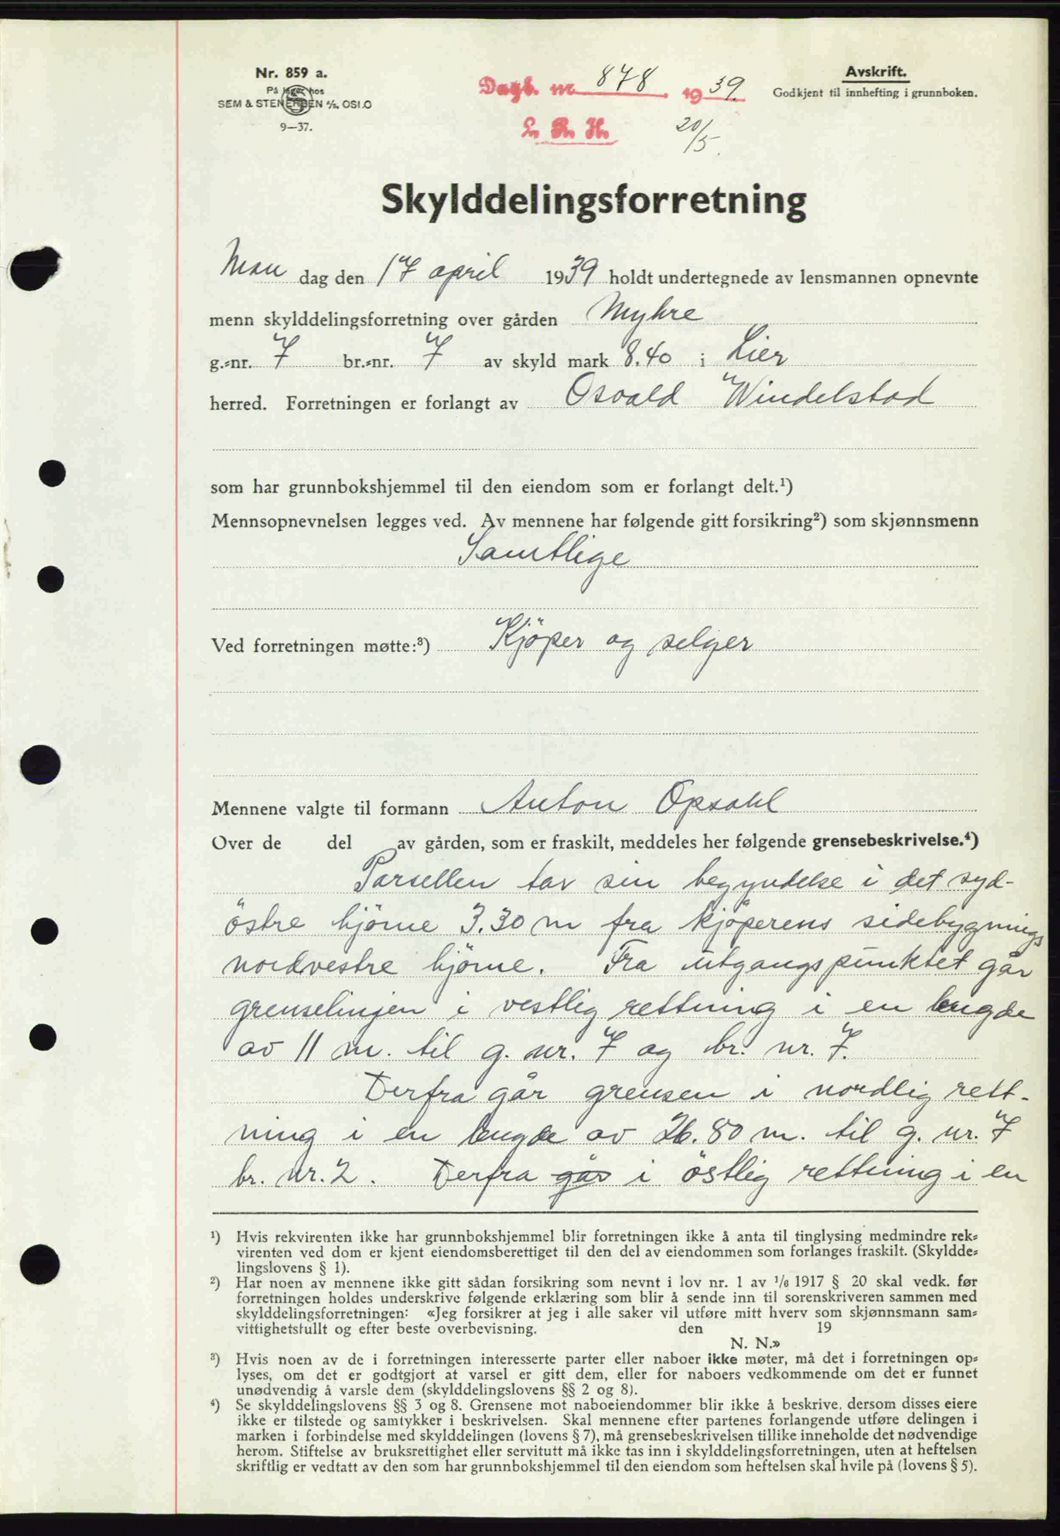 Nr. 859 a.
På lager hos
SEM & STENERSEN A/S, OSLO
9—37.
Dagb. nr. 878 1939.
L. R. H. 20/5.
Avskrift.
Godkjent til innhefting i grunnboken.
Skylddelingsforretning
Man dag den 17 april 1939 holdt undertegnede av lensmannen opnevnte
menn skylddelingsforretning over gården Myhre
g.-nr. 7 br.-nr. 7 av skyld mark 8.40 i Lier
herred. Forretningen er forlangt av Osvald Windelstad
som har grunnbokshjemmel til den eiendom som er forlangt delt.¹)
Mennsopnevnelsen legges ved. Av mennene har følgende gitt forsikring²) som skjønnsmenn
Samtlige
Ved forretningen møtte:³) Kjöper og selger
Mennene valgte til formann Anton Opsahl
Over de del av gården, som er fraskilt, meddeles her følgende grensebeskrivelse.⁴)
Parsellen tar sin begyndelse i det syd-
östre hjörne 3.30 m fra kjöperens sidebygnings
nordvestre hjörne. Fra utgangspunktet går
grenselinjen i vestlig rettning i en lengde
av 11 m. til g. nr. 7 og br. nr. 7.
Derfra går grensen i nordlig rett-
ning i en lengde av 26.80 m. til g. nr. 7
br. nr. 2. Derfra går i östlig rettning i en
¹) Hvis rekvirenten ikke har grunnbokshjemmel blir forretningen ikke å anta til tinglysing medmindre rek-
virenten ved dom er kjent eiendomsberettiget til den del av eiendommen som forlanges fraskilt. (Skyldde-
lingslovens § 1).
²) Har noen av mennene ikke gitt sådan forsikring som nevnt i lov nr. 1 av ¹/₆ 1917 § 20 skal vedk. før
forretningen holdes underskrive følgende erklæring som blir å sende inn til sorenskriveren sammen med
skylddelingsforretningen: «Jeg forsikrer at jeg i alle saker vil utføre mitt hverv som skjønnsmann sam-
vittighetsfullt og efter beste overbevisning. den 19
N. N.»
³) Hvis noen av de i forretningen interesserte parter eller naboer ikke møter, må det i forretningen op-
lyses, om det er godtgjort at varsel er gitt dem, eller for naboers vedkommende om det er funnet
unødvendig å varsle dem (skylddelingslovens §§ 2 og 8).
⁴) Se skylddelingslovens §§ 3 og 8. Grensene mot naboeiendommer blir ikke å beskrive, dersom disses eiere
ikke er tilstede og samtykker i beskrivelsen. Skal mennene efter partenes forlangende utføre delingen i
marken i forbindelse med skylddelingen (lovens § 7), må grensebeskrivelsen tillike inneholde det nødvendige
herom. Stiftelse av bruksrettighet eller servitutt må ikke tas inn i skylddelingsforretningen, uten at heftelsen
skriftlig er vedtatt av den som har grunnbokshjemmel til den eiendom som heftelsen skal hvile på (lovens § 5).